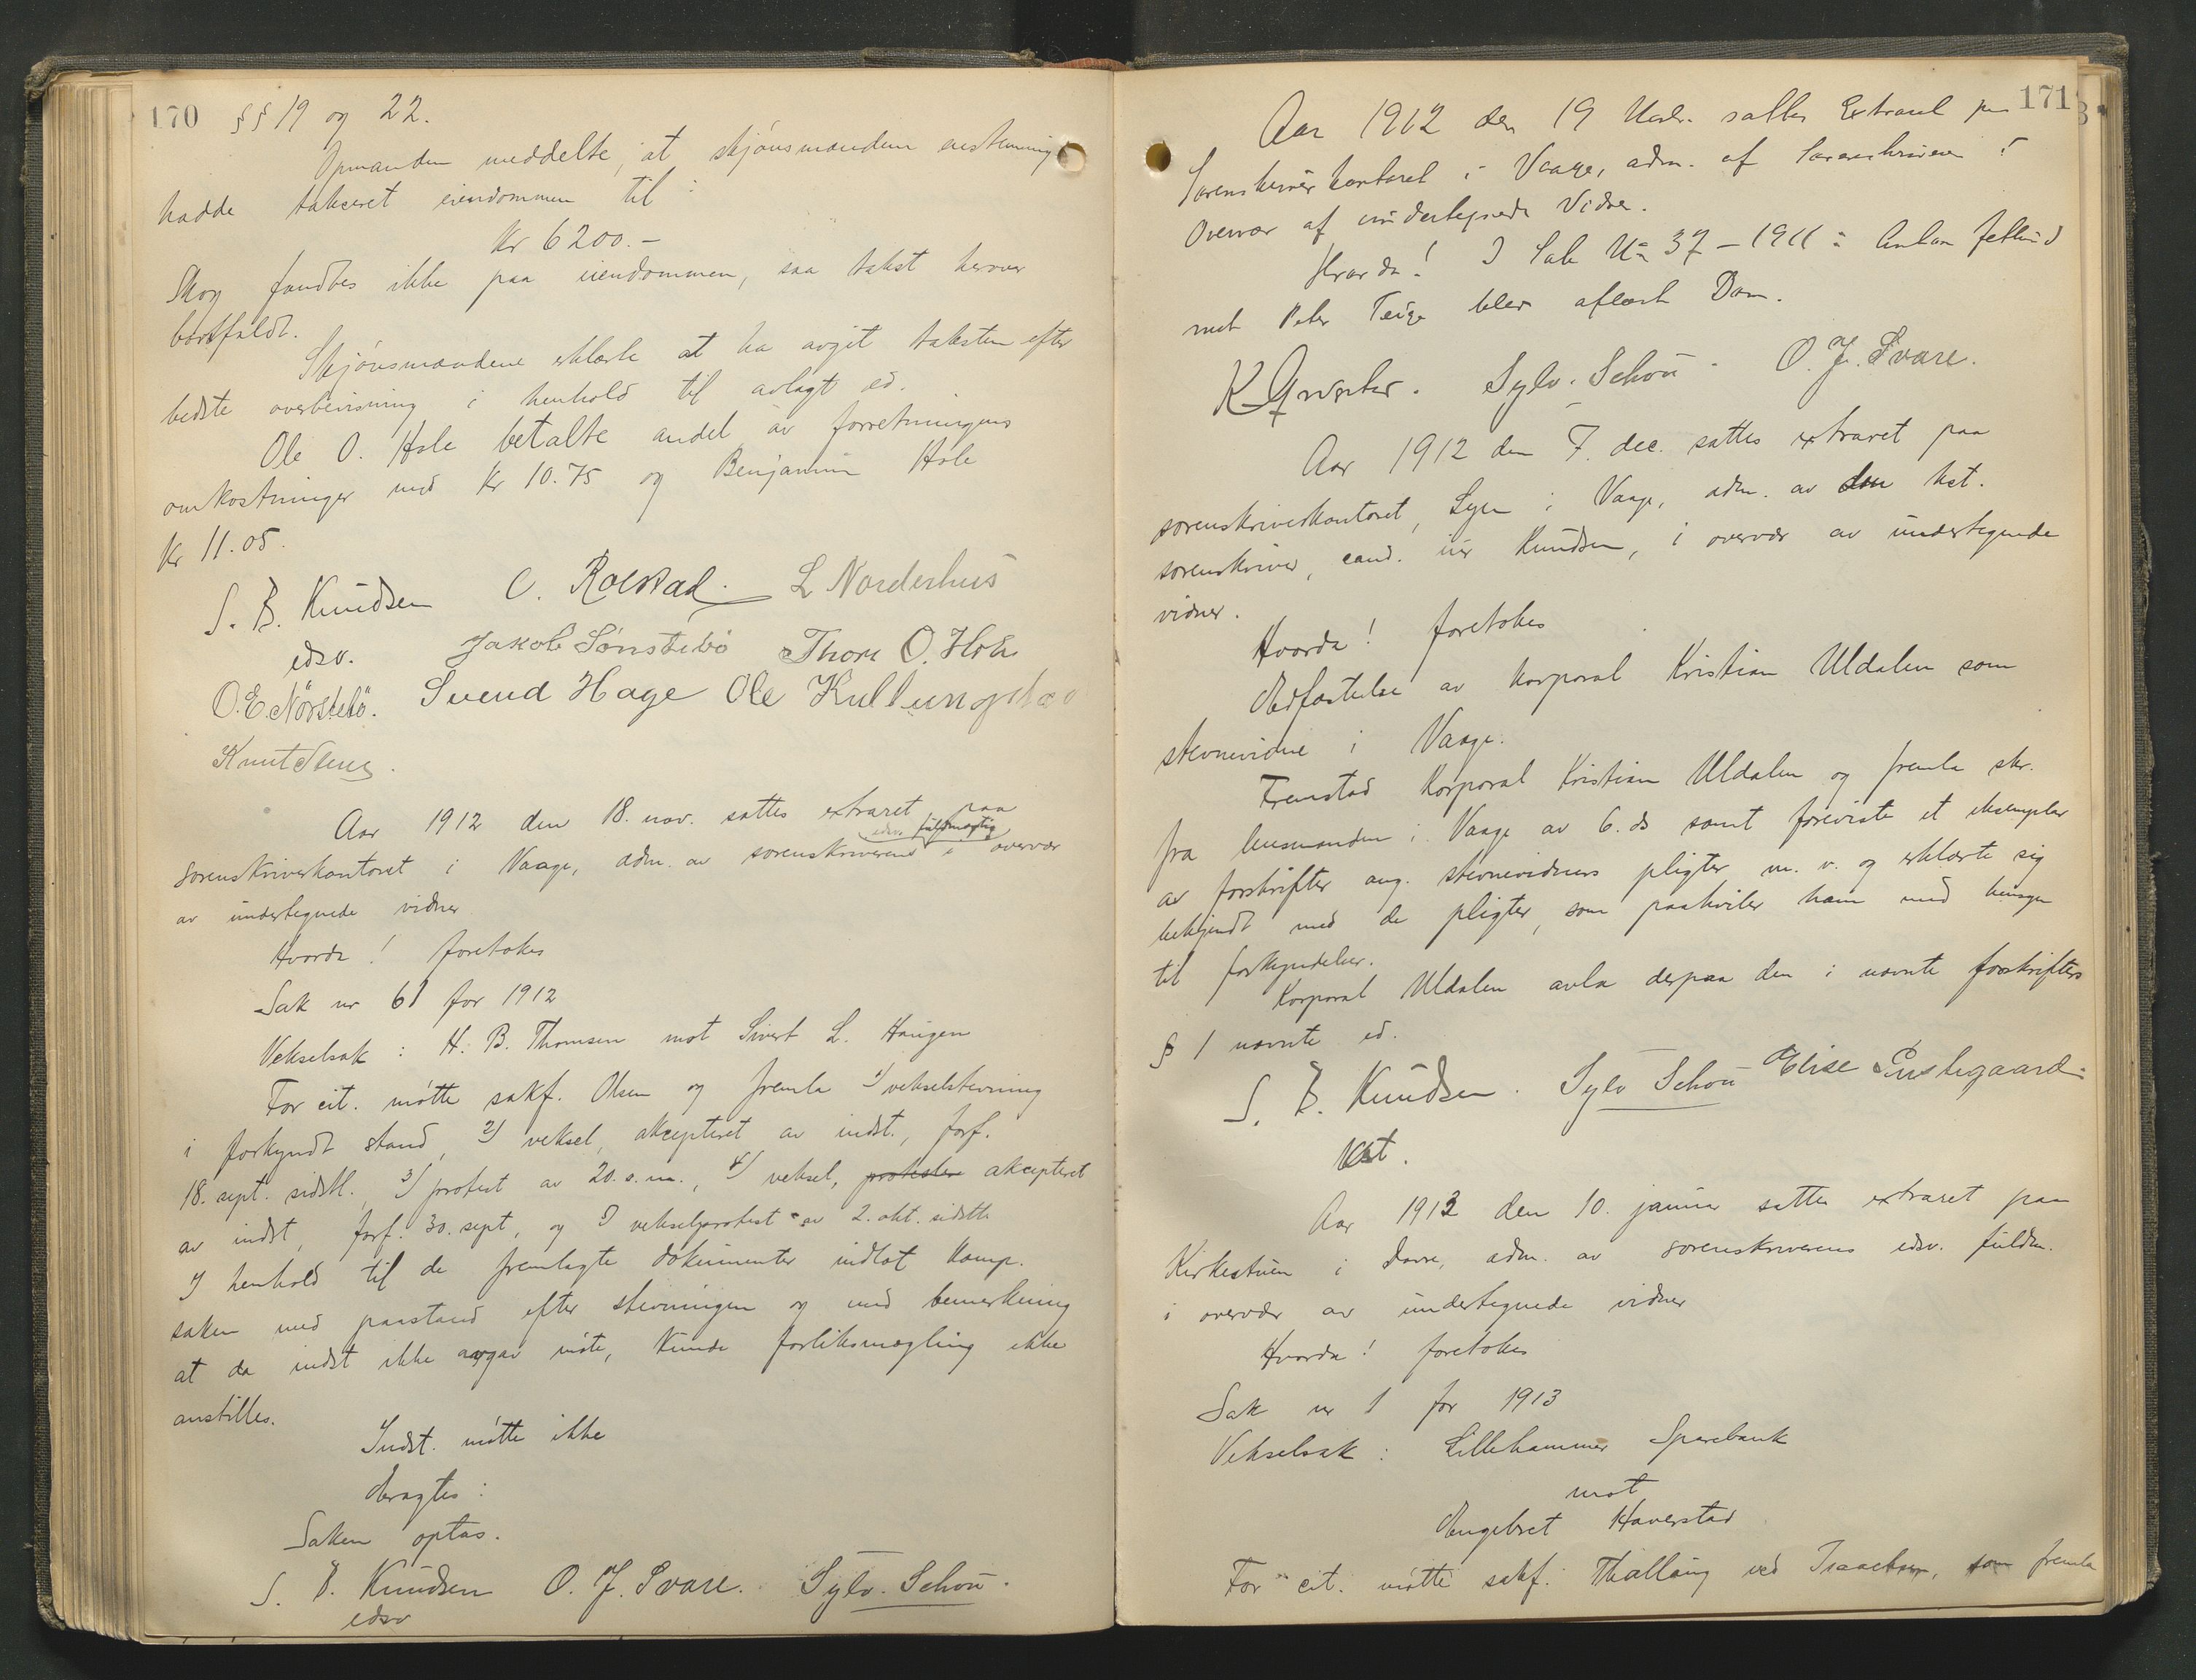 170 §§ 19 og 22.
Opmanden meddelte, at skjønsmændene enstemmig
hadde takseret eiendommen til :
Kr 6200.-
Skog fandtes ikke paa eiendommen, saa takst herover
bortfaldt.
Skjønsmændene erklærte at ha avgit taksten efter
bedste overbevisning i henhold til avlagt ed.
Ole O. Hole betalte andel av forretningens
omkostninger med Kr 10.75 og Benjamin Hole
Kr 11.05.
S. B. Knudsen O. Rolstad. L Norderhus
edsv. Jakob Sønstebø Thore O. Hole
O.E. Nørstebø. Svend Hage Ole Kullungstad
Knut
Aar 1912 den 18. nov. sattes extraret paa
sorenskriverkontoret i Vaage, adm. av sorenskriverens edsv. fuldmægtig i overvær
av undertegnede vidner
Hvorda! foretokes
Sak nr 61 for 1912
Vekselsak : H. B. Thomsen mot Sivert L. Haugen
For cit. møtte sakf. Olsen og fremla 1) vekselstevning
i forkyndt stand, 2) veksel, akcepteret av indst., forf.
18. sept. sidstl., 3) protest av 20. s. m., 4) veksel, protesten akcepteret
av indst, forf. 30. sept, og 5) vekselprotest av 2. okt. sidstl.
I henhold til de fremlagte dokumenter indlot komp.
saken med paastand efter stevningen og med bemerkning
at da indst ikke avgav møte, kunde forliksmægling ikke
anstilles.
Indst. møtte ikke
Eragtes :
Saken optas.
S. B. Knudsen O. J. Svare. Sylv. Schou.
edsv
171
Aar 1912 den 19 Novbr. sattes Extraret paa
Sorenskriverkontoret i Vaage, adm. af Sorenskriveren i
Overvær af undertegnede Vidner.
Hvorda! I Sak No 37 - 1911 : Anton Jetlund
mot Peter Teige blev aflæst Dom.
K Sylv. Schou. O. J. Svare.
Aar 1912 den 7. dec. sattes extraret paa
sorenskriverkontoret, Syre i Vaage, adm. av den kst.
sorenskriver, cand. jur Knudsen, i overvær av undertegnede
vidner.
Hvorda! foretokes
Edfæstelse av korporal Kristian Uldalen som
stevnevidne i Vaage.
Fremstod Korporal Kristian Uldalen og fremla skr.
fra lensmanden i Vaage av 6. ds samt foreviste et eksemplar
av forskrifter ang. stevnevidners pligter m. v. og erklærte sig
bekjendt med de pligter, som paahviler ham med hensyn
til forkyndelser.
Korporal Uldalen avla derpaa den i nævnte forskrifters
§ 1 nævnte ed.
S. B. Knudsen. Sylv Schou Elise Prestegaard.
Kst.
Aar 1913 den 10. januar sattes extraret paa
Kirkestuen i Dovre, adm. av sorenskriverens edsv. fuldm.
i overvær av undertegnede vidner
Hvorda! foretokes
Sak nr 1 for 1913
Vekselsak : Lillehammer Sparebank
mot
Engebret Haverstad
For cit. møtte sakf. Thallaug ved Isaachsen, som fremla